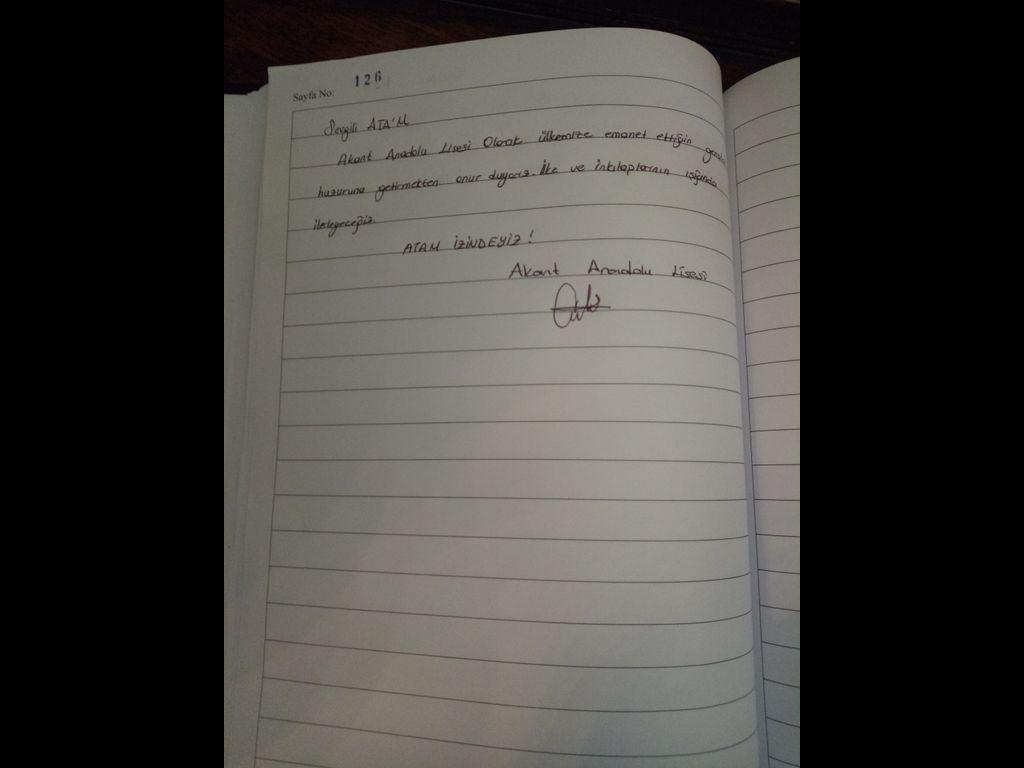 Sayfa No: 126
Sevgili ATA'M
Akant Anadolu Lisesi Olarak ülkemize emanet ettiğin
huzuruna getirmekten onur duyarız. İlke ve inkılaplarının ışığında
ilerleyeceğiz.
ATAM İZİNDEYİZ!
Akant Anadolu Lisesi